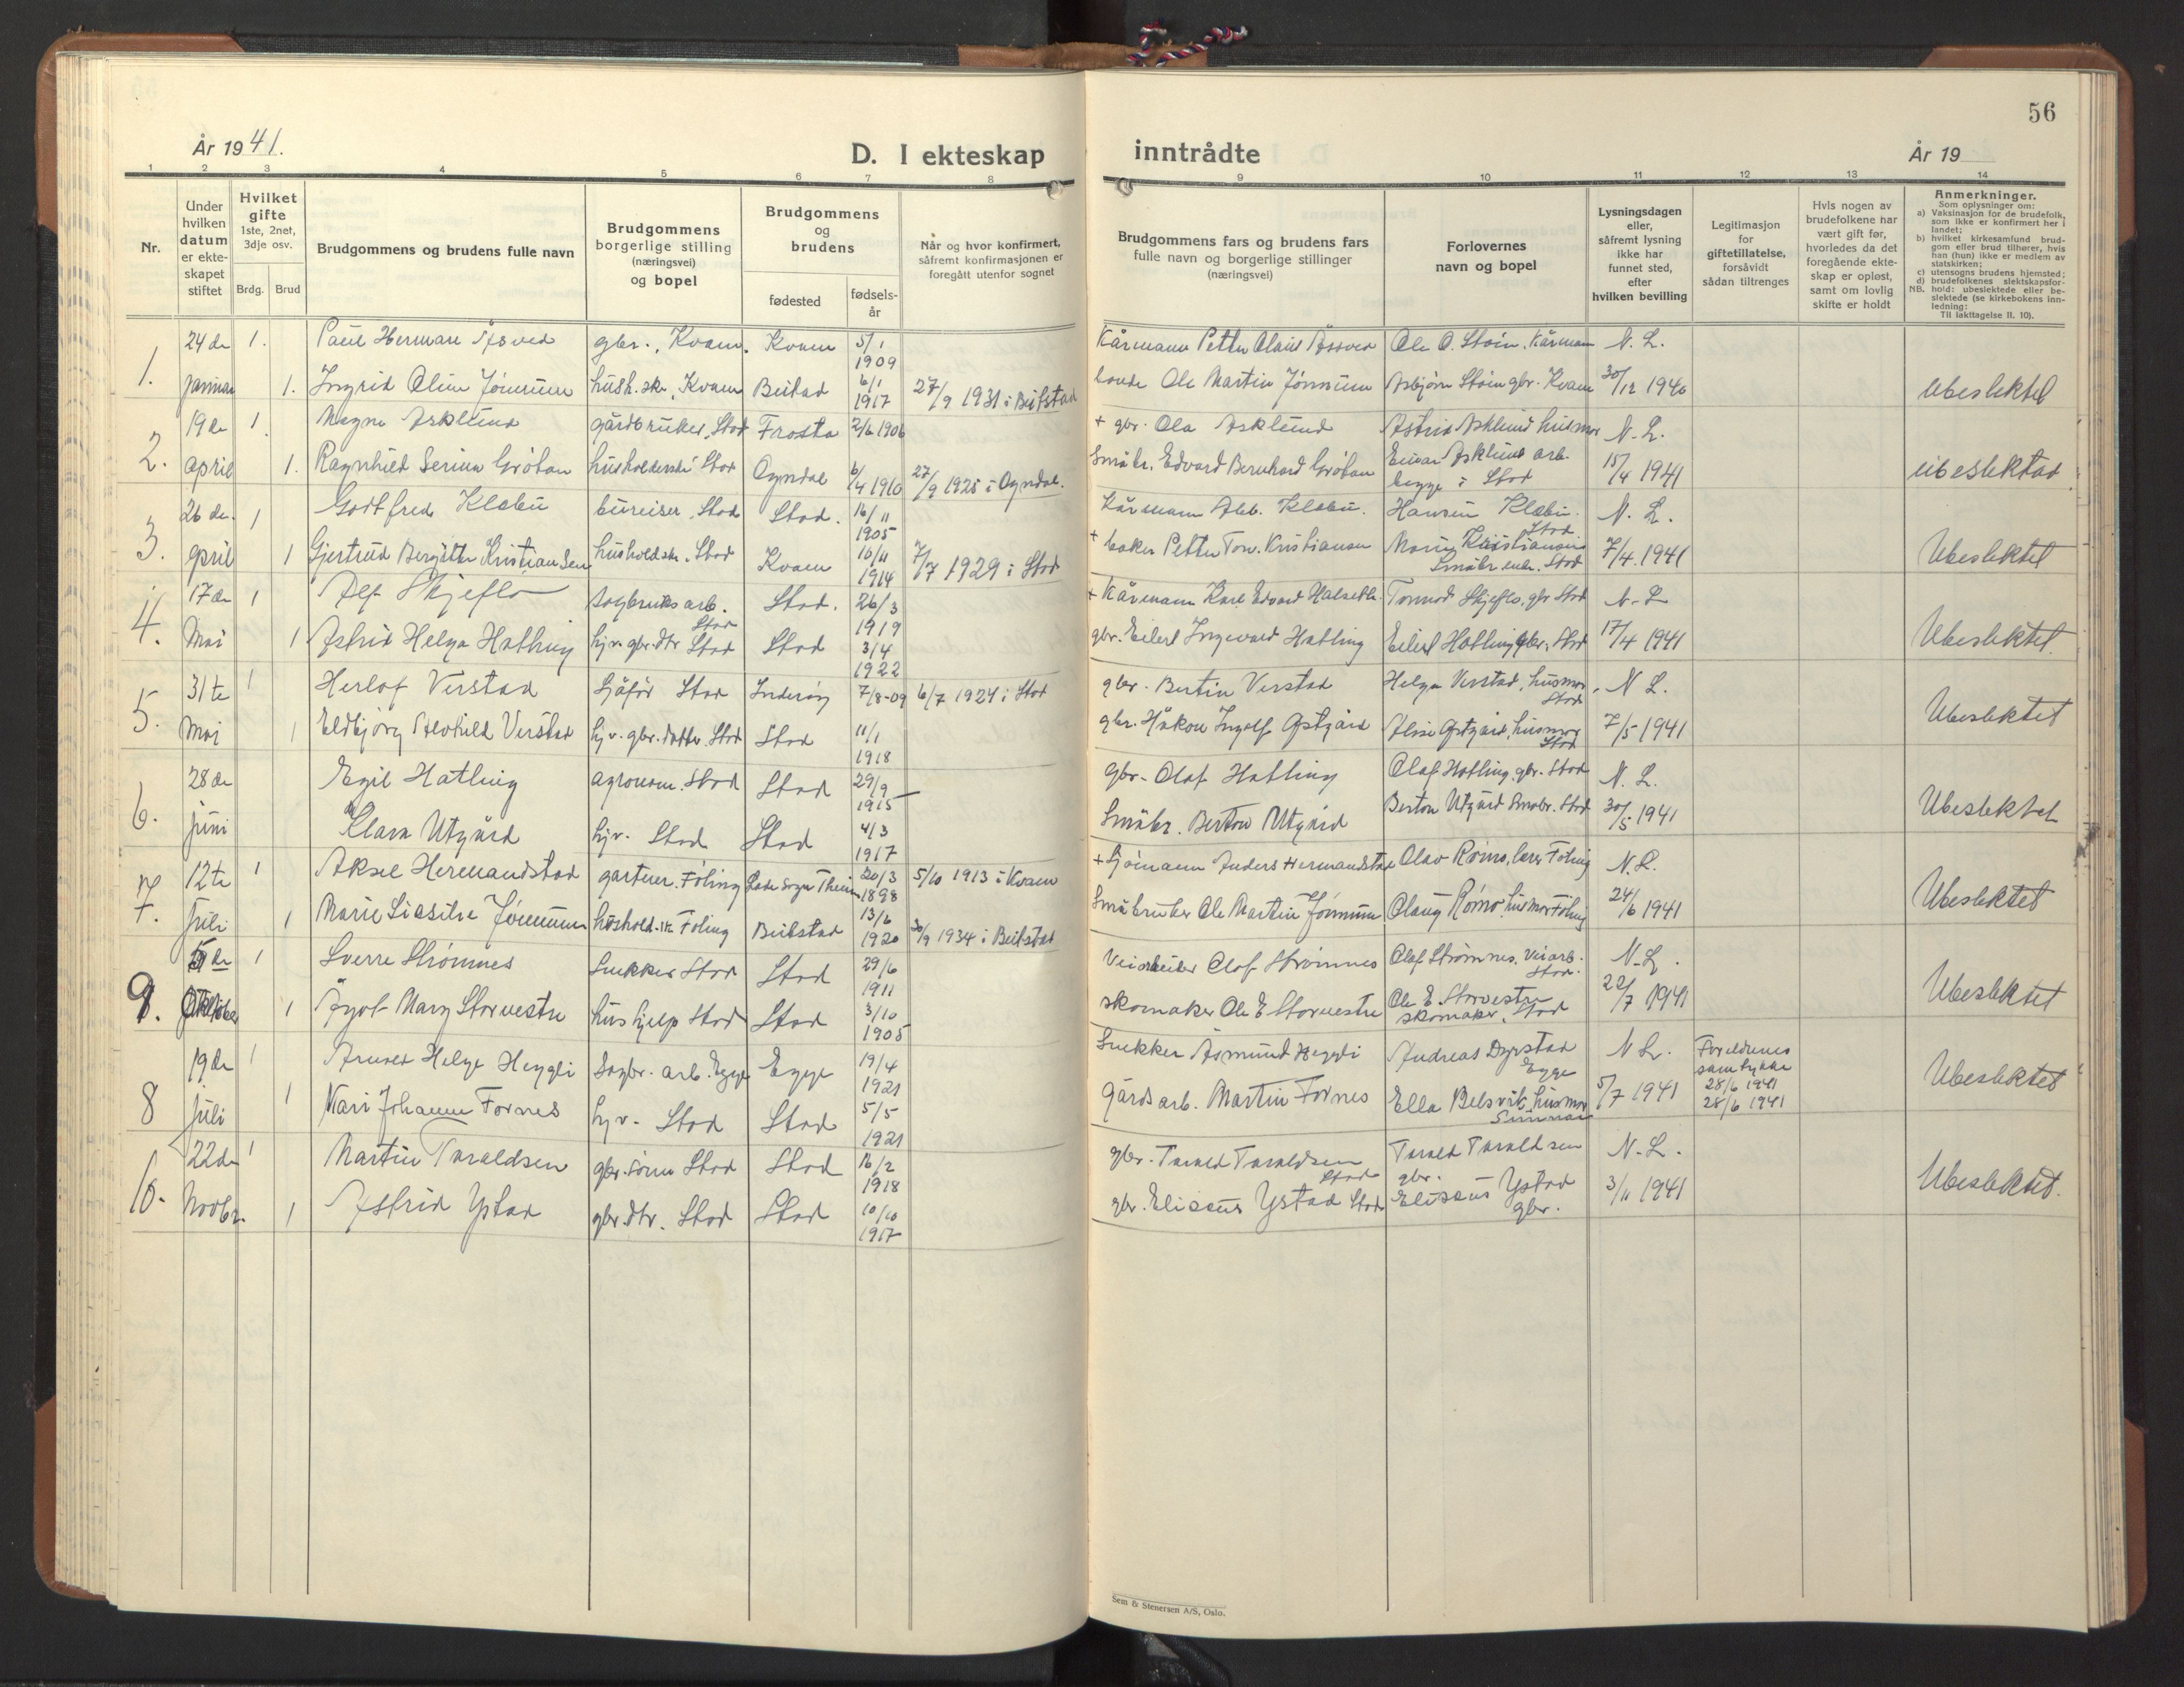 56
År 1941.
D. I ekteskap inntrådte
År 19
1 2 3 4 5 6 7 8 9 10 11 12 13 14
Nr.
Under hvilken datum er ekteskapet stiftet
Hvilket gifte 1ste, 2net, 3dje osv.
Brdg. Brud
Brudgommens og brudens fulle navn
Brudgommens borgerlige stilling (næringsvei) og bopel
Brudgommens og brudens
fødested
fødsels-år
Når og hvor konfirmert, såfremt konfirmasjonen er foregått utenfor sognet
Brudgommens fars og brudens fars fulle navn og borgerlige stillinger (næringsvei)
Forlovernes navn og bopel
Lysningsdagen eller, såfremt lysning ikke har funnet sted, efter hvilken bevilling
Legitimasjon for giftetillatelse, forsåvidt sådan tiltrenges
Hvis nogen av brudefolkene har vært gift før, hvorledes da det foregående ekteskap er opløst, samt om lovlig skifte er holdt
Anmerkninger.
Som oplysninger om:
a) Vaksinasjon for de brudefolk, som ikke er konfirmert her i landet;
b) hvilket kirkesamfund brudgom eller brud tilhører, hvis han (hun) ikke er medlem av statskirken;
c) utensogns brudens hjemsted;
d) brudefolkenes slektskapsforhold: ubeslektede eller beslektede (se kirkebokens innledning:
NB.
Til iakttagelse II. 10).
1. 24de 1. Paul Herman Åsved gbr., Kvam. Kvam 5/1 1909 Kårmann Petter Olaus Åssved Ole O. Støin, Kårmann N. L.
januar 1. Ingrid Oline Jønnum hush.ske, Kvam Beitstad 6/1 1917 27/9 1931 i Beitstad bonde Ole Martin Jønnum Asbjørn Støin gbr. Kvam 30/12 1940 Ubeslektet
2. 19de 1. Magne Asklund gårdbruker, Stod Frosta 2/6 1906 + gbr. Ola Asklund Astrid Asklund husmor N. L.
april 1. Ragnhild Serine Grøtan husholderske Stod Ogndal 6/4 1910 27/9 1925 i Ogndal. Småbr. Edvard Bernhard Grøtan Einar Asklund arb. begge i Stod 15/4 1941 ubeslektad
3. 26de 1 Godtfred Klæbu bureiser, Stod Stod. 16/11 1905 Kårmann Alb. Klæbu. Hansine Klæbu. Stod N. L.
april 1 Gjertrud Bergitte Kristiansen husholdske. Stod Kvam 10/11 1914 7/7 1929 i Stod + baker Petter Tor. Kristiansen Marie Kristiansen Småbr.enke. Stod 7/4. 1941 Ubeslektet
4. 17de 1 Alf Skjeflo sagbruksarb. Stod Stod. 26/3 1919 + Kårmann Karl Edvard Halseth Tormod Skjeflo, gbr Stod N. L
Mai 1 Astrid Helga Hatling hjv. gbr.dtr Stod Stod 3/4 1922 gbr. Eilert Ingevald Hatling Eilert Hatling gbr. Stod 17/4 1941 Ubeslektet.
5. 31te 1 Herlof Verstad Sjåfør Stod Inderøy 7/8-09 6/7 1924 i Stod gbr. Bertin Verstad Helga Verstad, husmor, Stod N L.
Mai 1 Eldbjørg Alvhild Verstad hjv. gbr. datter Stod Stod 11/1 1918 gbr. Håkon Ingolf Østgård Alise Østgård, husmor Stod 7/5 1941 Ubeslektet
6. 28de Egil Hatling agronom. Stod Stod 29/9 1915 gbr. Olaf Hatling Olaf Hatling, gbr. Stod N. L.
juni Klara Utgård hjv. Stod Stod 4/3 1917 Småbr. Berton Utgård Berton Utgård Småbr. Stod 30/5 1941 Ubeslektet
7. 12te 1 Aksel Hermandstad gartner. Føling Lade sogn Thrim 20/3 1898 5/10 1913 i Kvam + Sjømann Anders Hermandstad Olav Rømo, lærer Føling N. L.
Juli 1 Marie Jønnum hushold.ske Føling Beitstad 13/6 1920 30/9 1934 i Beitstad Småbruker Ole Martin Jønnum Olaug Rømo husmor Føling 24/6 1941 Ubeslektet
9. 5te 1 Sverre Strømnes Snekker Stod Stod 29/6 1911 Veiarbeider Olaf Strømnes Olaf Strømnes, veiarb. Stod. N. L.
Oktober 1 Mary Storvestre hushjelp Stod Stod 3/10 1905 skomaker Ole E Storvestre Ole E. Storvestre skomaker, Stod 22/7 1941 Ubeslektet
8 19de 1 Helge Heggli Sagbr. arb. Egge Egge 19/4 1921 Snekker Åsmund Heggli Andreas Dyrstad Egge N L. Foreldrenes samtykke 28/6 1941 28/6 1941
juli 1 Kari Johanne Fornes hjv. Stod Stod 5/5 1921 Gårdsarb. Martin Fornes Ella Belsvik, husmor Sunnan 5/7 1941 Ubeslektet
10. 22de 1 Martin Taraldsen gbr.sønn Stod Stod 16/2 1918 gbr. Tarald Taraldsen Stod Tarald Taraldsen gbr. N. L.
Novbr. 1 Astrid Ystad gbr.dtr. Stod Stod 10/10 1917 gbr. Eliseus Ystad Stod Eliseus Ystad gbr. 3/11 1941 Ubeslektet.
Sem & Stenersen A/S, Oslo.